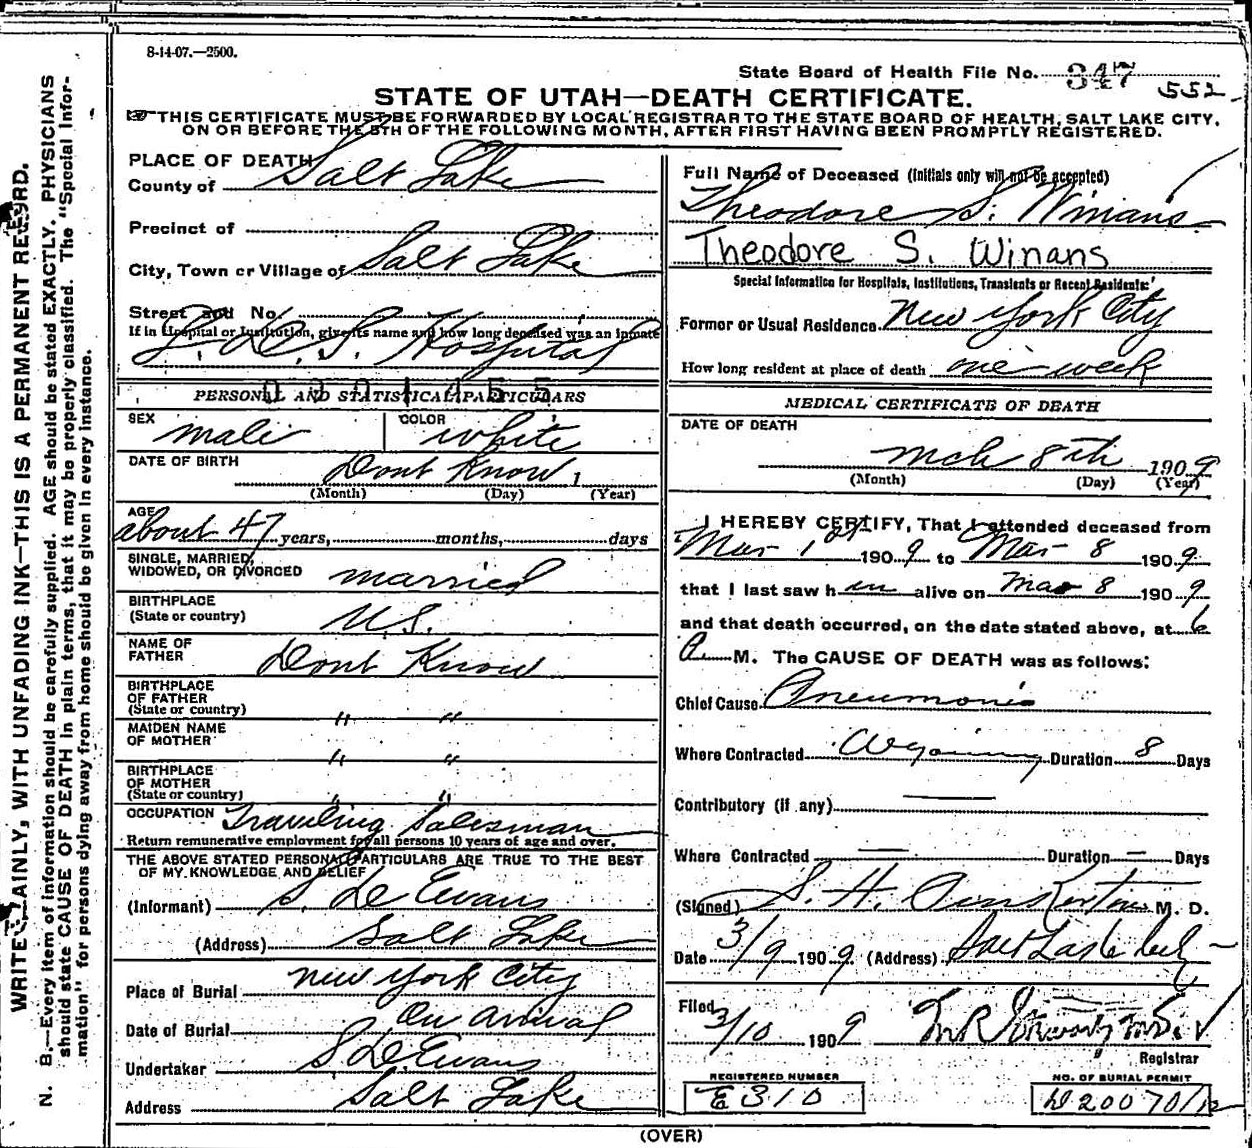 8-14-07.—2500.
State Board of Health File No. 347
552
STATE OF UTAH—DEATH CERTIFICATE.
THIS CERTIFICATE MUST BE FORWARDED BY LOCAL REGISTRAR TO THE STATE BOARD OF HEALTH, SALT LAKE CITY,
ON OR BEFORE THE 5TH OF THE FOLLOWING MONTH, AFTER FIRST HAVING BEEN PROMPTLY REGISTERED.
WRITE PLAINLY, WITH UNFADING INK—THIS IS A PERMANENT RECORD.
N. B.—Every item of information should be carefully supplied. AGE should be stated EXACTLY. PHYSICIANS
should state CAUSE OF DEATH in plain terms, that it may be properly classified. The "Special Infor-
mation" for persons dying away from home should be given in every instance.
PLACE OF DEATH
County of Salt Lake
Precinct of
City, Town or Village of Salt Lake
Street and No.
If in Hospital or Institution, give its name and how long deceased was an inmate
L. D. S. Hospital
0201455
PERSONAL AND STATISTICAL PARTICULARS
SEX male COLOR white
DATE OF BIRTH Dont Know 1
(Month) (Day) (Year)
AGE about 47 years, months, days
SINGLE, MARRIED,
WIDOWED, OR DIVORCED married
BIRTHPLACE
(State or country) U.S.
NAME OF
FATHER Dont Know
BIRTHPLACE
OF FATHER
(State or country) " "
MAIDEN NAME
OF MOTHER " "
BIRTHPLACE
OF MOTHER
(State or country) " "
OCCUPATION Traveling Salesman
Return remunerative employment for all persons 10 years of age and over.
THE ABOVE STATED PERSONAL PARTICULARS ARE TRUE TO THE BEST
OF MY KNOWLEDGE AND BELIEF
(Informant) S. D. Evans
(Address) Salt Lake
Place of Burial New York City
Date of Burial On Arrival
Undertaker S. D. Evans
Address Salt Lake
Full Name of Deceased (Initials only will not be accepted)
Theodore S. Winans
Theodore S. Winans
Special Information for Hospitals, Institutions, Transients or Recent Residents:
Former or Usual Residence. New York City
How long resident at place of death one week
MEDICAL CERTIFICATE OF DEATH
DATE OF DEATH
Mch 8th 1909
(Month) (Day) (Year)
I HEREBY CERTIFY, That I attended deceased from
Mar 1st 1909 to Mar 8 1909
that I last saw him alive on Mar 8 1909
and that death occurred, on the date stated above, at 6
M. The CAUSE OF DEATH was as follows:
Chief Cause Pneumonia
Where Contracted Wyoming Duration 8 Days
Contributory (if any) —
Where Contracted — Duration — Days
(Signed) S. H. M. D.
Date 3/9 1909 (Address) Salt Lake City
Filed 3/10 1909
Registrar
REGISTERED NUMBER NO. OF BURIAL PERMIT
E310
(OVER)